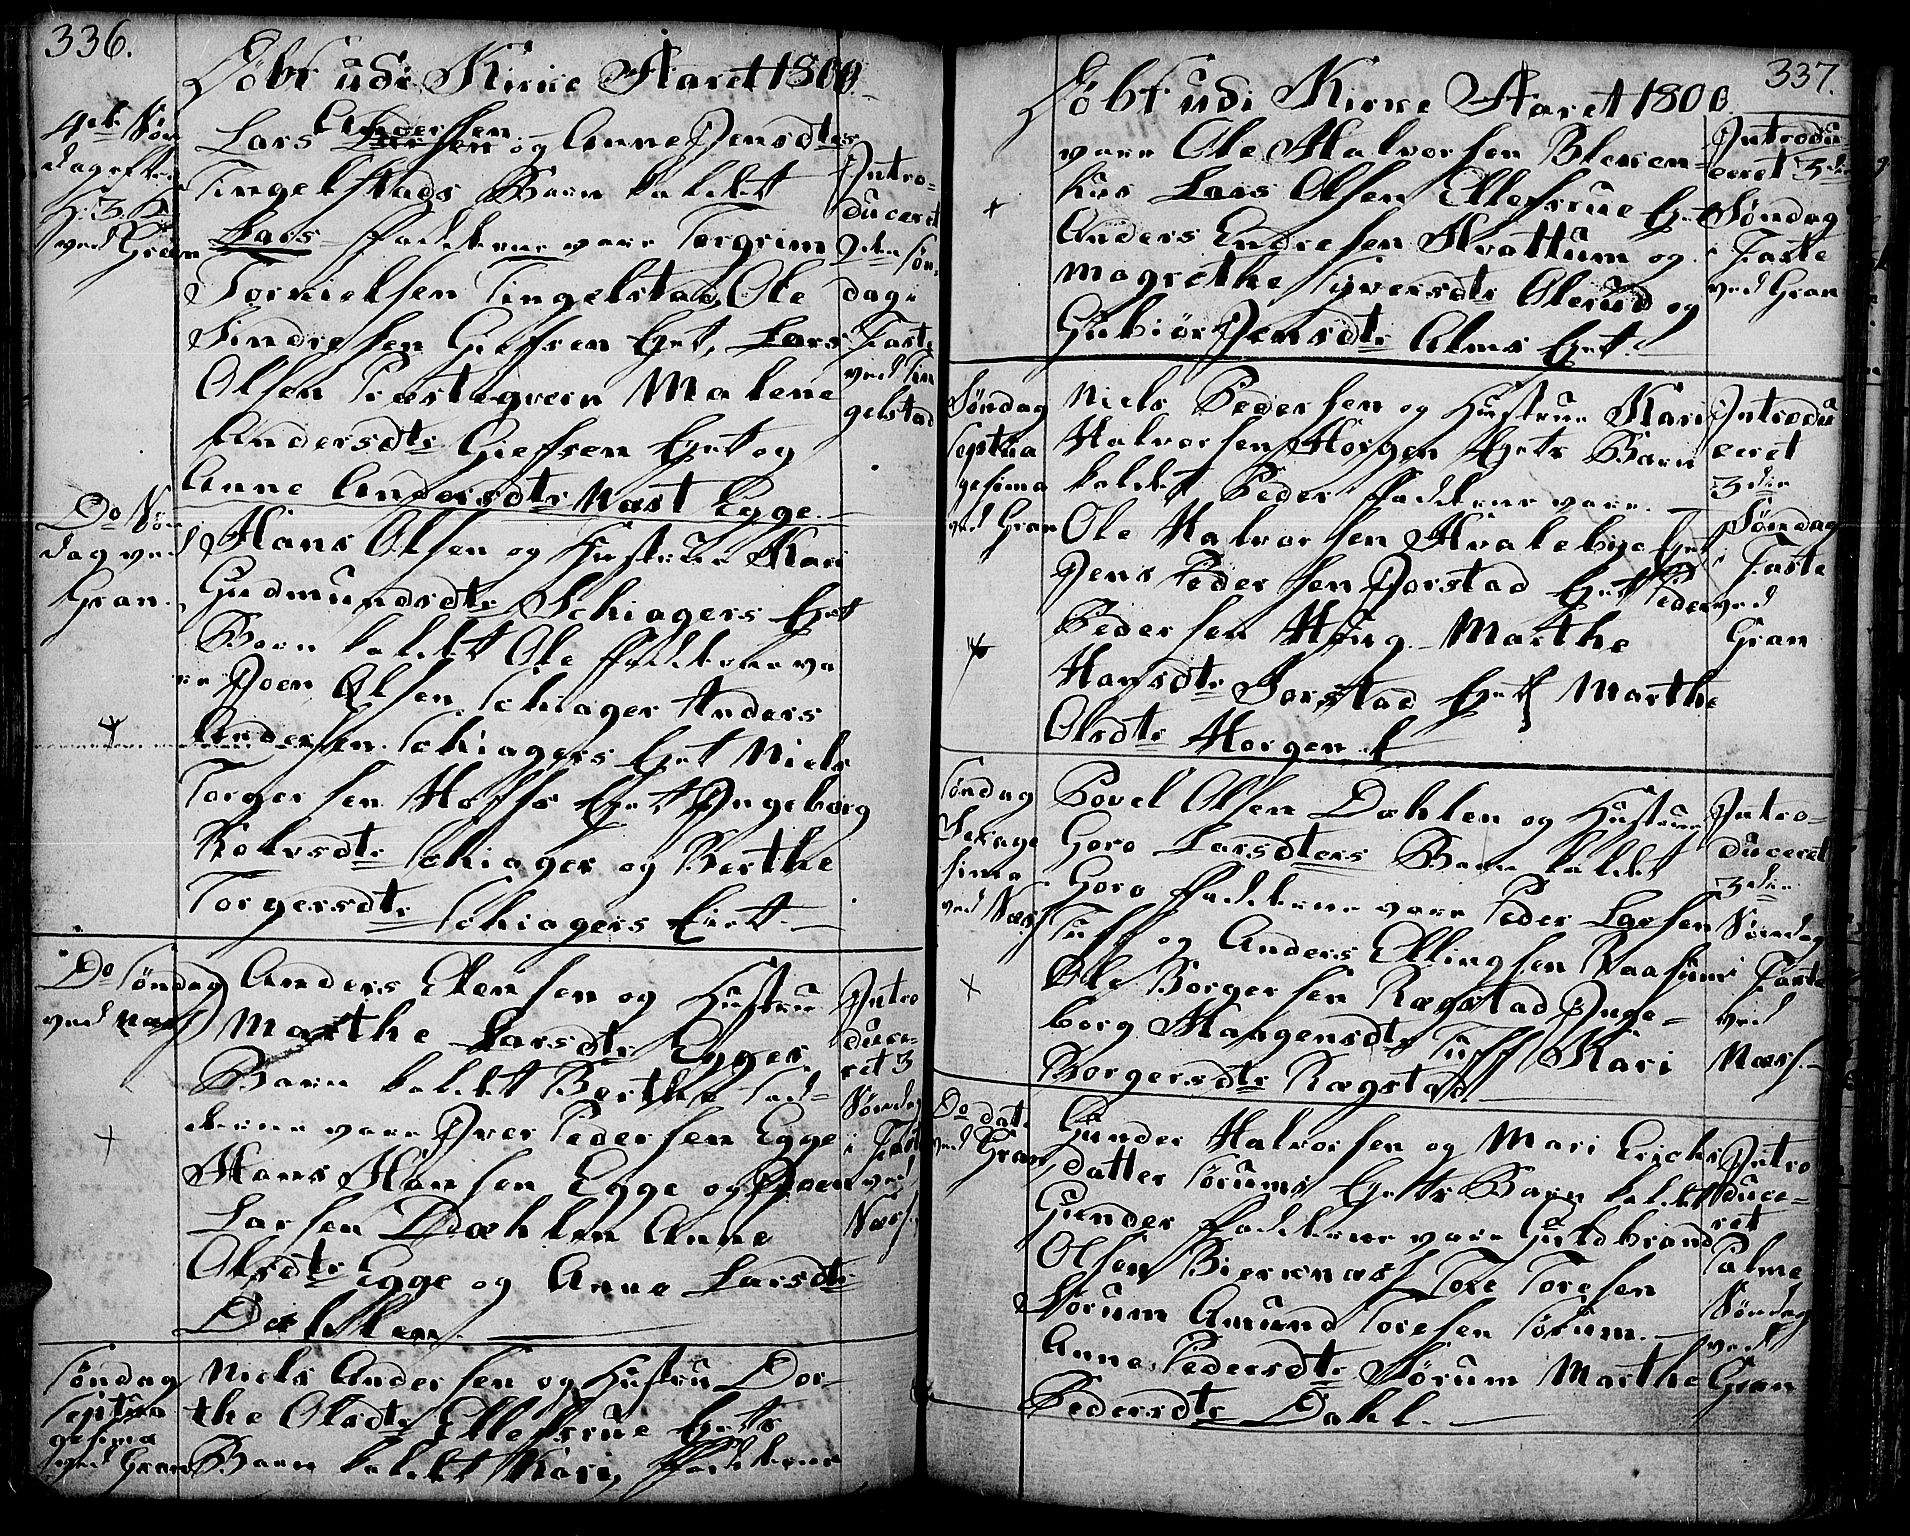 336.
Döbt udi Kirke Aaret 1800
4de Søn
dag efter
H: 3 K
ved Gran
Lars Andersen og Anne Jensdtrs
Tingelstads Barn kaldet
Lars Fadderne vare Torgrim
Tingelstad, Ole
Sindresen Giefsen Eyet, Lars
Olsen Præstegven Malene
Andersdtr Giefsen Eyet og
Anne Andersdtr Næst Egge.
Intro-
duceret
2den Søn-
dag i
Faste
ved Tin
gelstad
Do Søn
dag ved
Gran.
Hans Olsen og Hustrue Kari
Gudmundsdtr Schiagers Eyet
Barn kaldet Ole Fadderne va
re Joen Olsen Schiager Anders
Andersen Schiagers Eyet Niels
Torgersen Hoffs Eyet Ingeborg
Rolvsdtr Schiager og Berthe
Torgersdtr Schiagers Eiet
Do Søndag
ved Næss
Anders Ellensen og Hustrue
Marthe Larsdtr Egges
Barn kaldet Berthe Fad-
derne vare Iver Pedersen Egge
Hans Hansen Egge og Joen
Larsen Dæhlen Anne
Olsdtr Egge og Anne Larsdtr
Dæhlen.
Intro
duce-
ret 3
Søndag
i Faste
ved
Næss.
Søndag
Septua
gesima
ved Gran
Niels Andersen og Hustru Dor-
the Olsdtr Ellefsrue Eyets
Barn kaldet Kari, Fadderne
337.
Döbt udi Kirke Aaret 1800
vare Ole Halvorsen Bleken-
hus Lars Olsen Ellefsrue Eyet
Anders Endresen Hvattum og
Magrethe Syversdtr Olerud og
Gubiør Jensdtr Alms Eyet.
Introdu
ceret 3die
Søndag
i Faste
ved Gran
Søndag
Septua
gesima
ved Gran
Niels Pedersen og Hustrue Kari
Halvorsen Horgen Eyets Barn
kaldet Peder Fadderne vare
Ole Halvorsen Hvalebye Eyet
Jens Pedersen Jorstad Eyet Peder
Pedersen Houg Marthe
Hansdtr Jorstad Eyet Marthe
Olsdtr Horgen.
Introdu
ceret
3die
Søndag
i Faste
ved
Gran
Søndag
Sexage
sima
ved Næss
Povel Olsen Dæhlen og Hustrue
Goro Larsdters Barn kaldet
Goro Fadderne vare Peder Larsen
Tuff og Anders Ellingsen Raasum
Ole Borgersen Rægstad Inge-
borg Haagensdtr Tuff Kari
Borgersdtr Rægstad
Intro-
duceret
3die
Søndag
i Faste
ved
Næss.
Do dat.
ved Gran
Gunder Halvorsen og Mari Erichs
datter Sørums Eyets Barn kaldet
Gunder Fadderne vare Guldbrand
Olsen Bierknæs Tore Toresen
Sørum Amund Toresen Sørum.
Anne Pedersdtr Sørum Marthe
Pedersdtr Dahl.
Intro
duce-
ret
Palme
Søndag
ved
Gran